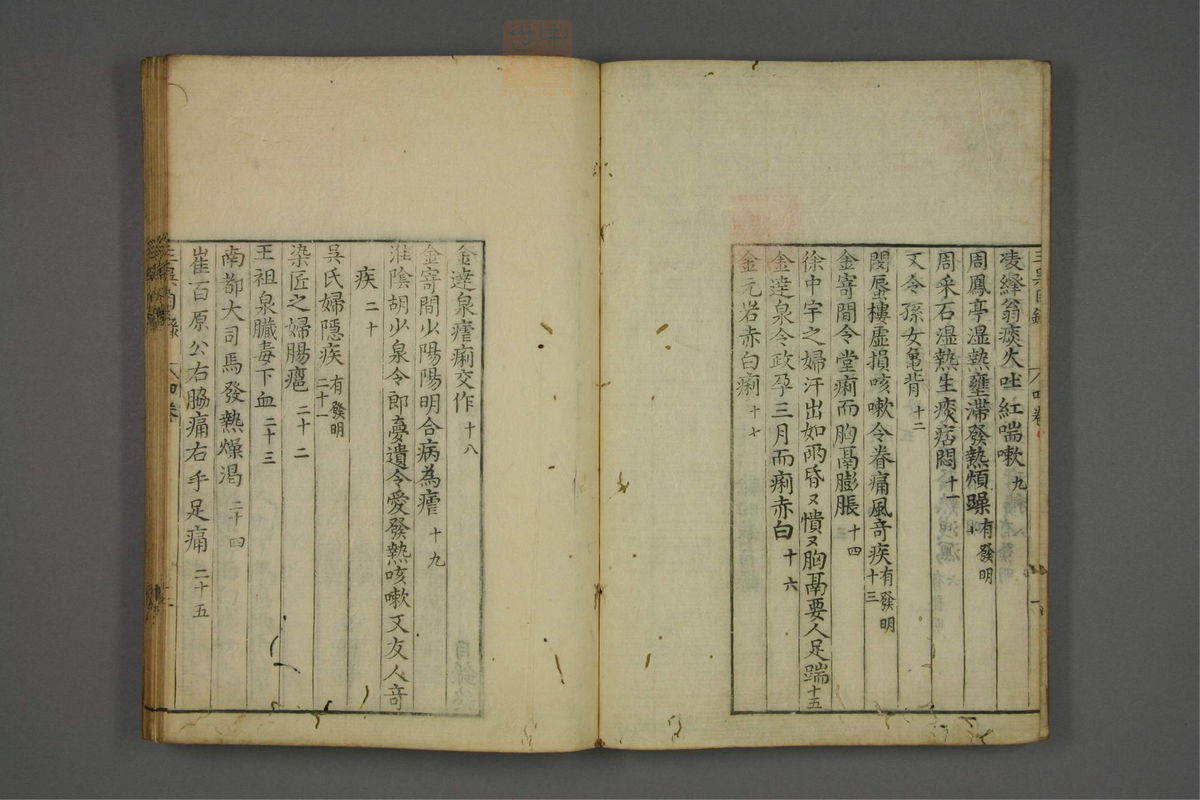 凌繹翁痰火吐紅喘嗽 九
周鳳亭湿熱壅滯發熱煩躁 有發明 十
周采石湿熱生痰痞悶 十一
又令孫女亀背 十二
閔蜃樓虚損咳嗽令眷痛風竒疾 有發明 十三
金寄間令堂痢而胸鬲膨脹 十四
徐中宇之婦汗出如雨昏又憒又胸鬲要人足踹 十五
金達泉令政孕三月而痢赤白 十六
金元岩赤白痢 十七
金達泉瘧痢交作 十八
金寄間少陽陽明合病為瘧 十九
淮陰胡少泉令郎夢遺令愛發熱咳嗽又友人竒
疾 二十
吳氏婦隠疾 有發明 二十一
染匠之婦腸癰 二十二
王祖泉臟毒下血 二十三
南都大司馬發熱燥渇 二十四
崔百原公右脇痛右手足痛 二十五